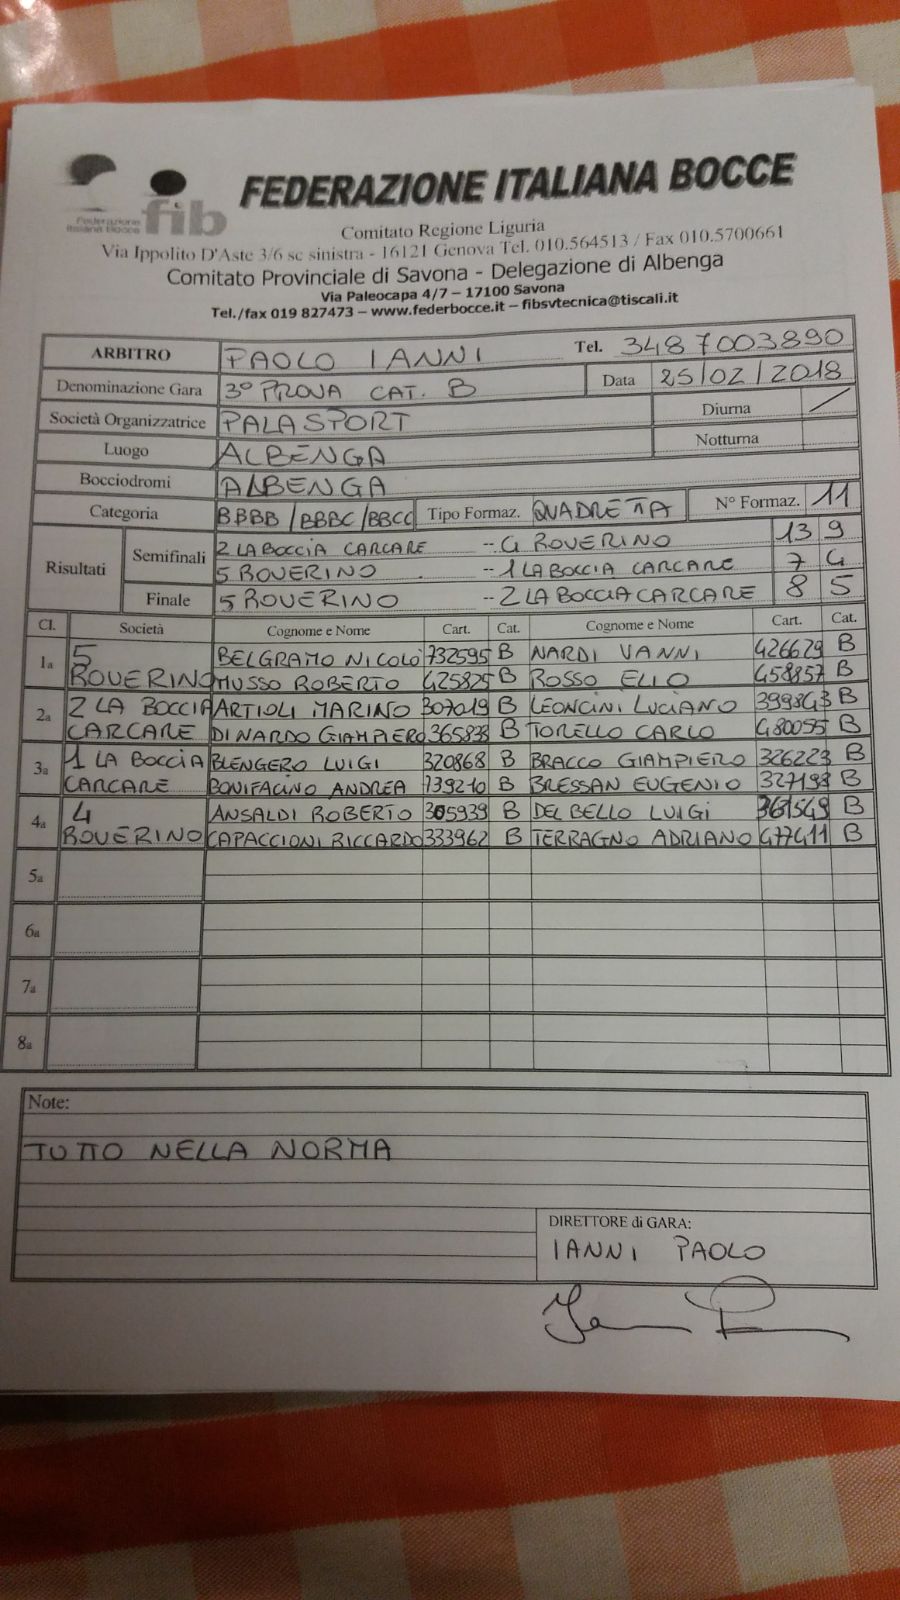 Federazione
Italiana Bocce
fib
FEDERAZIONE ITALIANA BOCCE
Comitato Regione Liguria
Via Ippolito D'Aste 3/6 sc sinistra - 16121 Genova Tel. 010.564513 / Fax 010.5700661
Comitato Provinciale di Savona - Delegazione di Albenga
Via Paleocapa 4/7 – 17100 Savona
Tel./fax 019 827473 – www.federbocce.it – fibsvtecnica@tiscali.it
ARBITRO PAOLO IANNI Tel. 3487003890
Denominazione Gara 3° PROVA CAT. B Data 25/02/2018
Società Organizzatrice PALASPORT Diurna /
Luogo ALBENGA Notturna
Bocciodromi ALBENGA
Categoria BBBB/BBBC/BBCC Tipo Formaz. QUADRETTA N° Formaz. 11
Risultati Semifinali 2 LA BOCCIA CARCARE -- 4 ROVERINO 13 9
5 ROVERINO -- 1 LA BOCCIA CARCARE 7 4
Finale 5 ROVERINO -- 2 LA BOCCIA CARCARE 8 5
Cl. Società Cognome e Nome Cart. Cat. Cognome e Nome Cart. Cat.
1a 5 BELGRAMO NICOLÒ 732595 B NARDI VANNI 426629 B
ROVERINO MUSSO ROBERTO 425825 B ROSSO ELIO 458857 B
2a 2 LA BOCCIA ARTIOLI MARINO 307019 B LEONCINI LUCIANO 399843 B
CARCARE DI NARDO GIAMPIERO 365835 B TORELLO CARLO 480055 B
3a 1 LA BOCCIA BLENGERO LUIGI 320868 B BRACCO GIAMPIERO 326223 B
CARCARE BONIFACINO ANDREA 739210 B BRESSAN EUGENIO 327198 B
4a 4 ANSALDI ROBERTO 305939 B DEL BELLO LUIGI 361549 B
ROVERINO CAPACCIONI RICCARDO 333962 B TERRAGNO ADRIANO 477411 B
5a
6a
7a
8a
Note:
TUTTO NELLA NORMA
DIRETTORE di GARA:
IANNI PAOLO